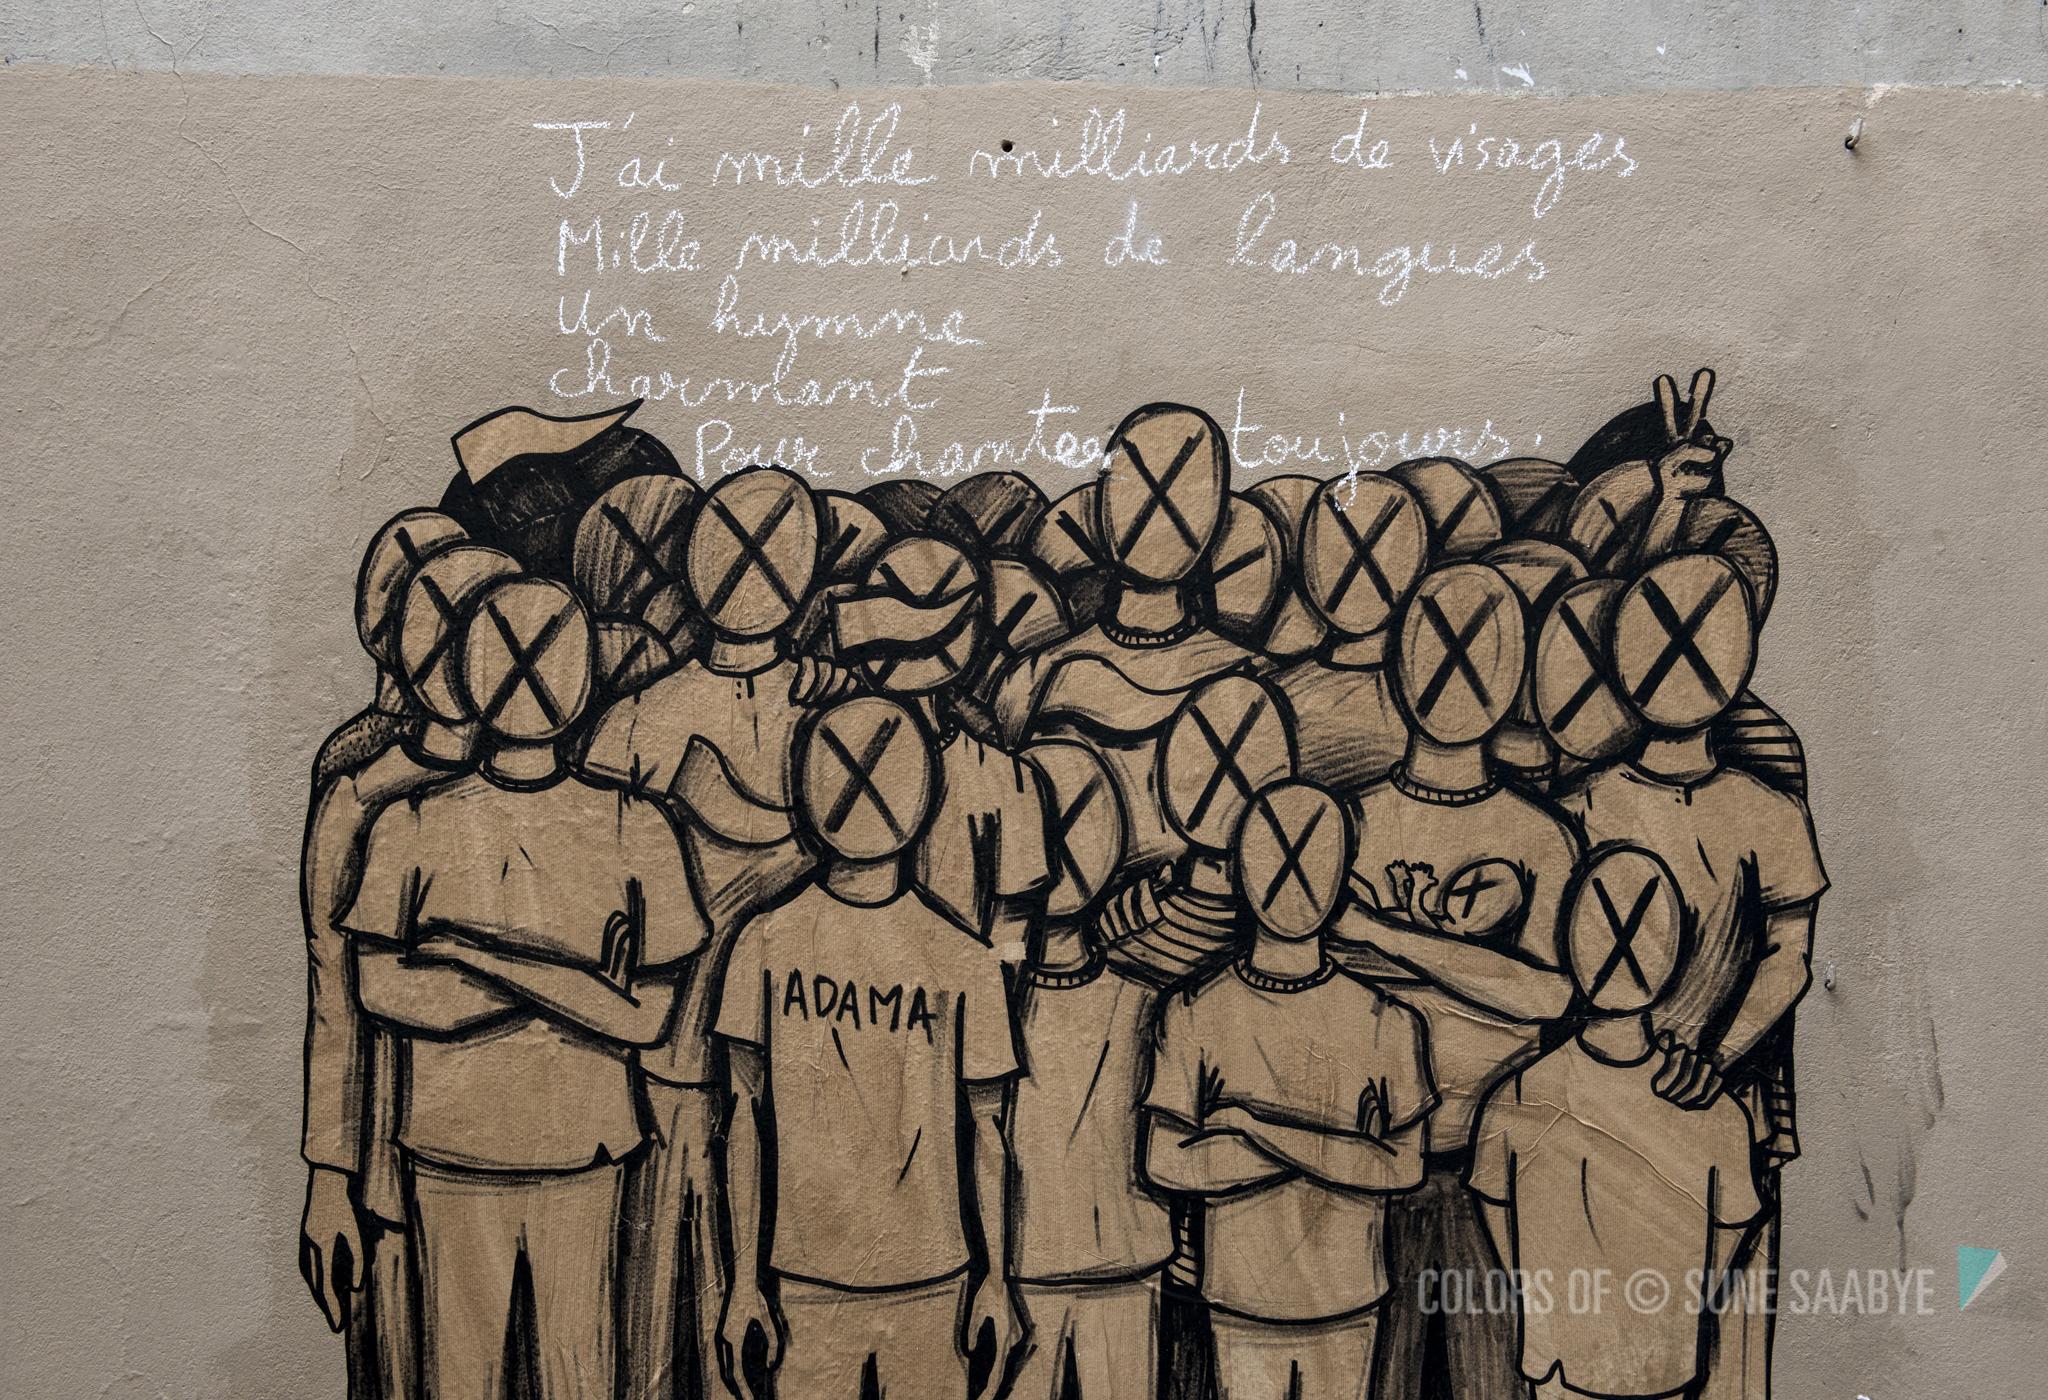 J'ai mille milliards de visages
Mille milliards de langues
Un hymne
charmant
Pour chanter toujours.
ADAMA
COLORS OF © SUNE SAABYE